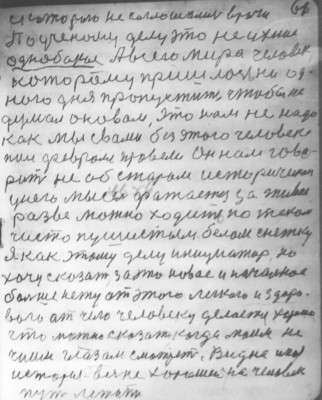 с которого не соглошались врачи
Поученому делу это не ихнее
однобокое А всего мира человек
которому пришлось ни од-
ного дня пропустить, чтобы не
думал о новом, это нам не надо
как мы с вами без этого человека
провели Он нам гово-
рит не об старом историческом
у него мысль за живое
разве можно ходить по таком
чисто пушистым белом снежку
Я как этому делу инициатор, но
хочу сказать за это новое и начальное
больше нету от этого легкого и здоро-
вого от чего человеку делается хорошо
что можно сказать, когда моим не
чьим глазам смотрет. Видна иная
история вся не хорошая на человека
путь летать